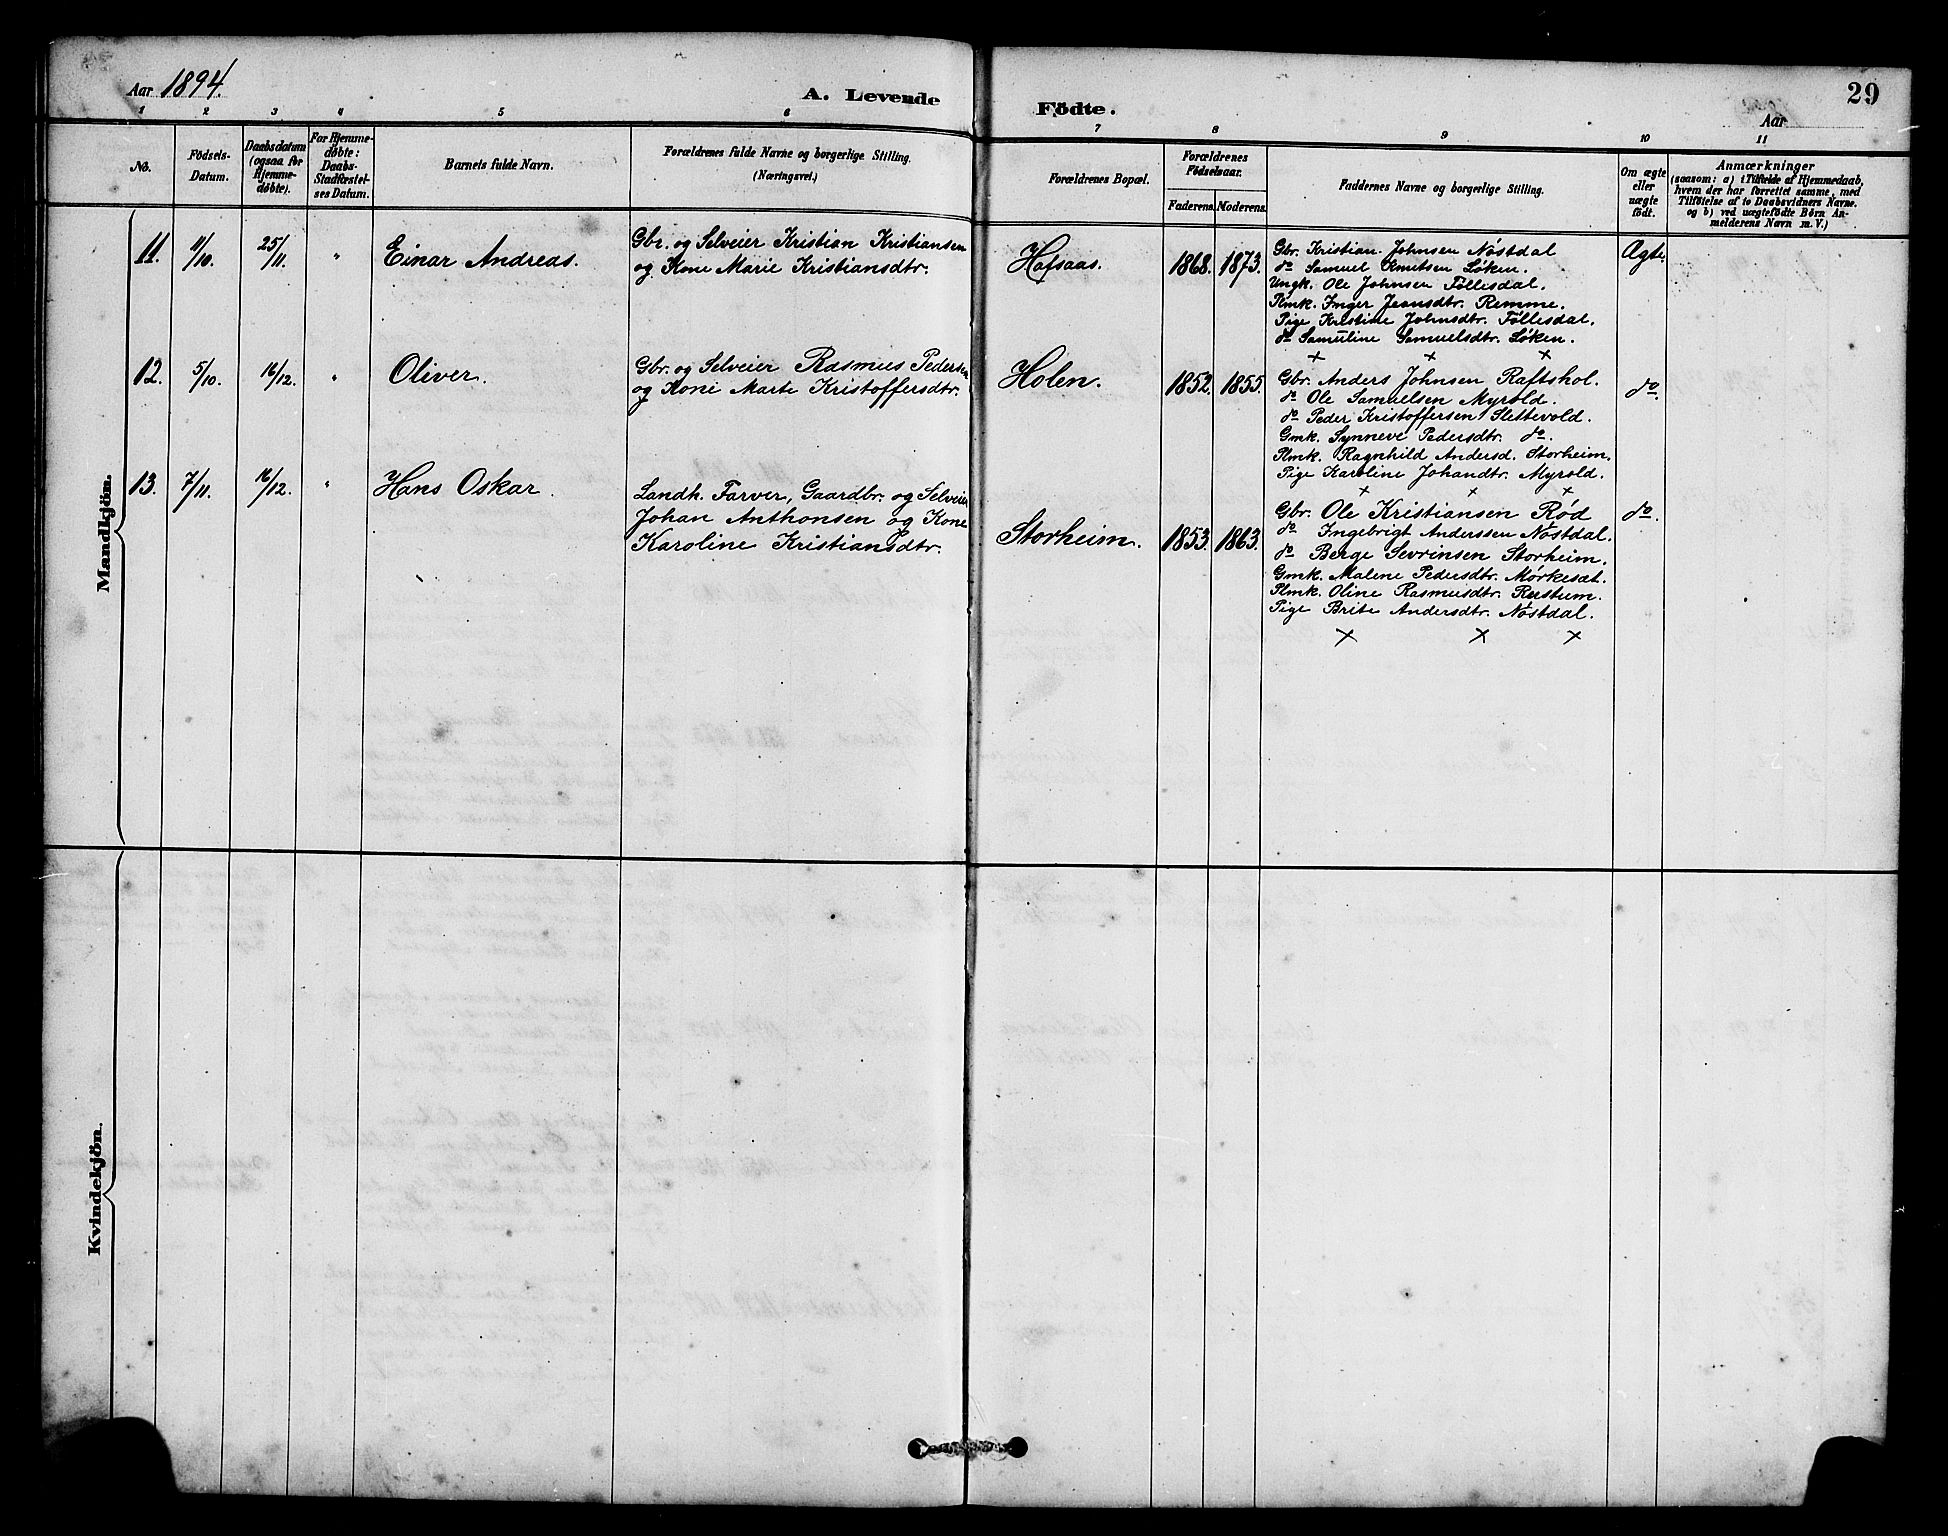 Aar 1894.
A. Levende Födte.
Aar
29
1 2 3 4 5 6 7 8 9 10 11
No.
Födsels-
Datum.
Daabsdatum
(ogsaa for
Hjemme-
døbte).
For Hjemme-
døbte:
Daabs-
Stadfæstel-
ses Datum.
Barnets fulde Navn.
Forældrenes fulde Navne og borgerlige Stilling.
(Næringsvei.)
Forældrenes Bopæl.
Forældrenes
Födselsaar.
Faderens. Moderens.
Faddernes Navne og borgerlige Stilling.
Om ægte
eller
uægte
født.
Anmærkninger
(saasom: a) i Tilfælde af Hjemmedaab,
hvem der har forrettet samme, med
Tilføielse af to Daabsvidners Navne.
og b) ved uægtefödte Börn An-
melderens Navn m. V.)
Mandkjön.
11. /10. 25/11. " Einar Andreas.
Gbr. og Selveier Kristian Kristiansen
og Kone Marie Kristiansdtr.
Hafsaas. 1868. 1873.
Gbr. Kristian Johnsen Nøstdal
do Samuel Knutsen Løken.
Ungk. Ole Johnsen Føllesdal.
Plmk. Inger Jensdtr. Remme.
Pige Kristine Johnsdtr. Føllesdal.
do Samuline Samuelsdtr. Løken.
x x x
Ægte.
12. 5/10. 16/12. " Oliver.
Gbr. og Selveier Rasmus Pedersen
og Kone Marte Kristoffersdtr.
Holen. 1852. 1855.
Gbr. Anders Johnsen Raftshol.
do Ole Samuelsen Myrold.
do Peder Kristoffersen Slettevold.
Gmk. Synneve Pedersdtr. do.
Plmk. Ragnhild Andersd. Storheim.
Pige Karoline Johandtr. Myrold.
x x x
do.
13. 7/11. 16/12. " Hans Oskar.
Landh. Farver, Gaardbr. og Selveier
Johan Anthonsen og Kone
Karoline Kristiansdtr.
Storheim. 1853. 1863.
Gbr. Ole Kristiansen Rød
do Ingebrigt Anderssen Nøstdal.
do Berge Sevrinsen Storheim.
Gmk. Malene Pedersdtr. Mørkesæt.
Plmk. Oline Rasmusdtr. Rustum.
Pige Brite Andersdtr. Nøstdal.
x x x
do.
Kvindekjön.